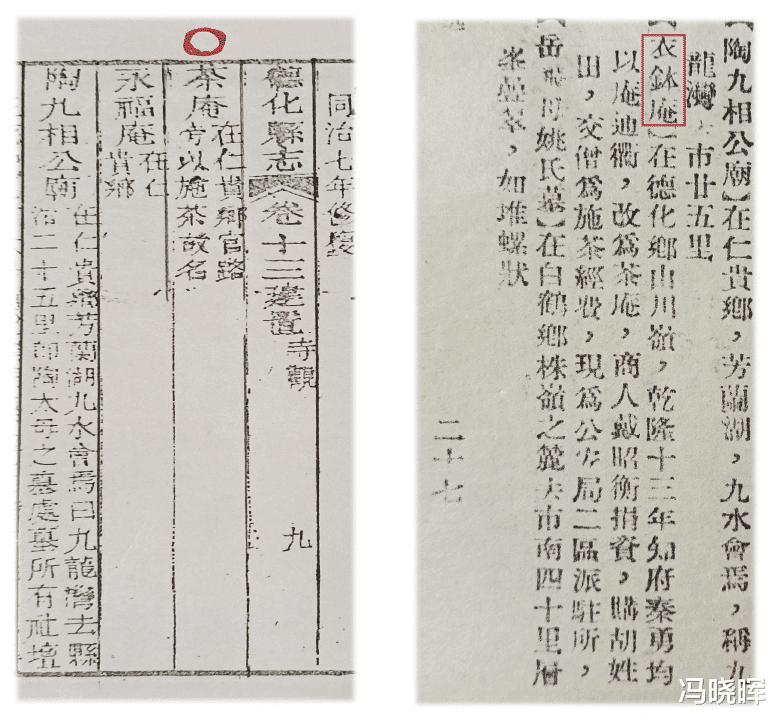 同治七年修
德化縣志 卷十三 建置 寺觀 九
茶庵 在仁貴鄉官路
旁以施茶故名
永福庵 在仁
貴鄉
陶九相公廟 在仁貴鄉芳蘭湖九水會焉曰九龍灣去縣
治二十五里即陶太母之墓處墓所有社壇
【陶九相公廟】在仁貴鄉，芳蘭湖，九水會焉，稱九
龍灣，市廿五里
【衣鉢庵】在德化鄉山川嶺，乾隆十三年知府秦勇均
以庵迪衢，改爲茶庵，商人戴昭衡捐資，購胡姓
田，交僧爲施茶經費，現爲公安局二區派駐所，
【岳飛母姚氏墓】在白鶴鄉株嶺之麓去市南四十里層
峯翠，如堆螺狀
二十七
冯晓晖